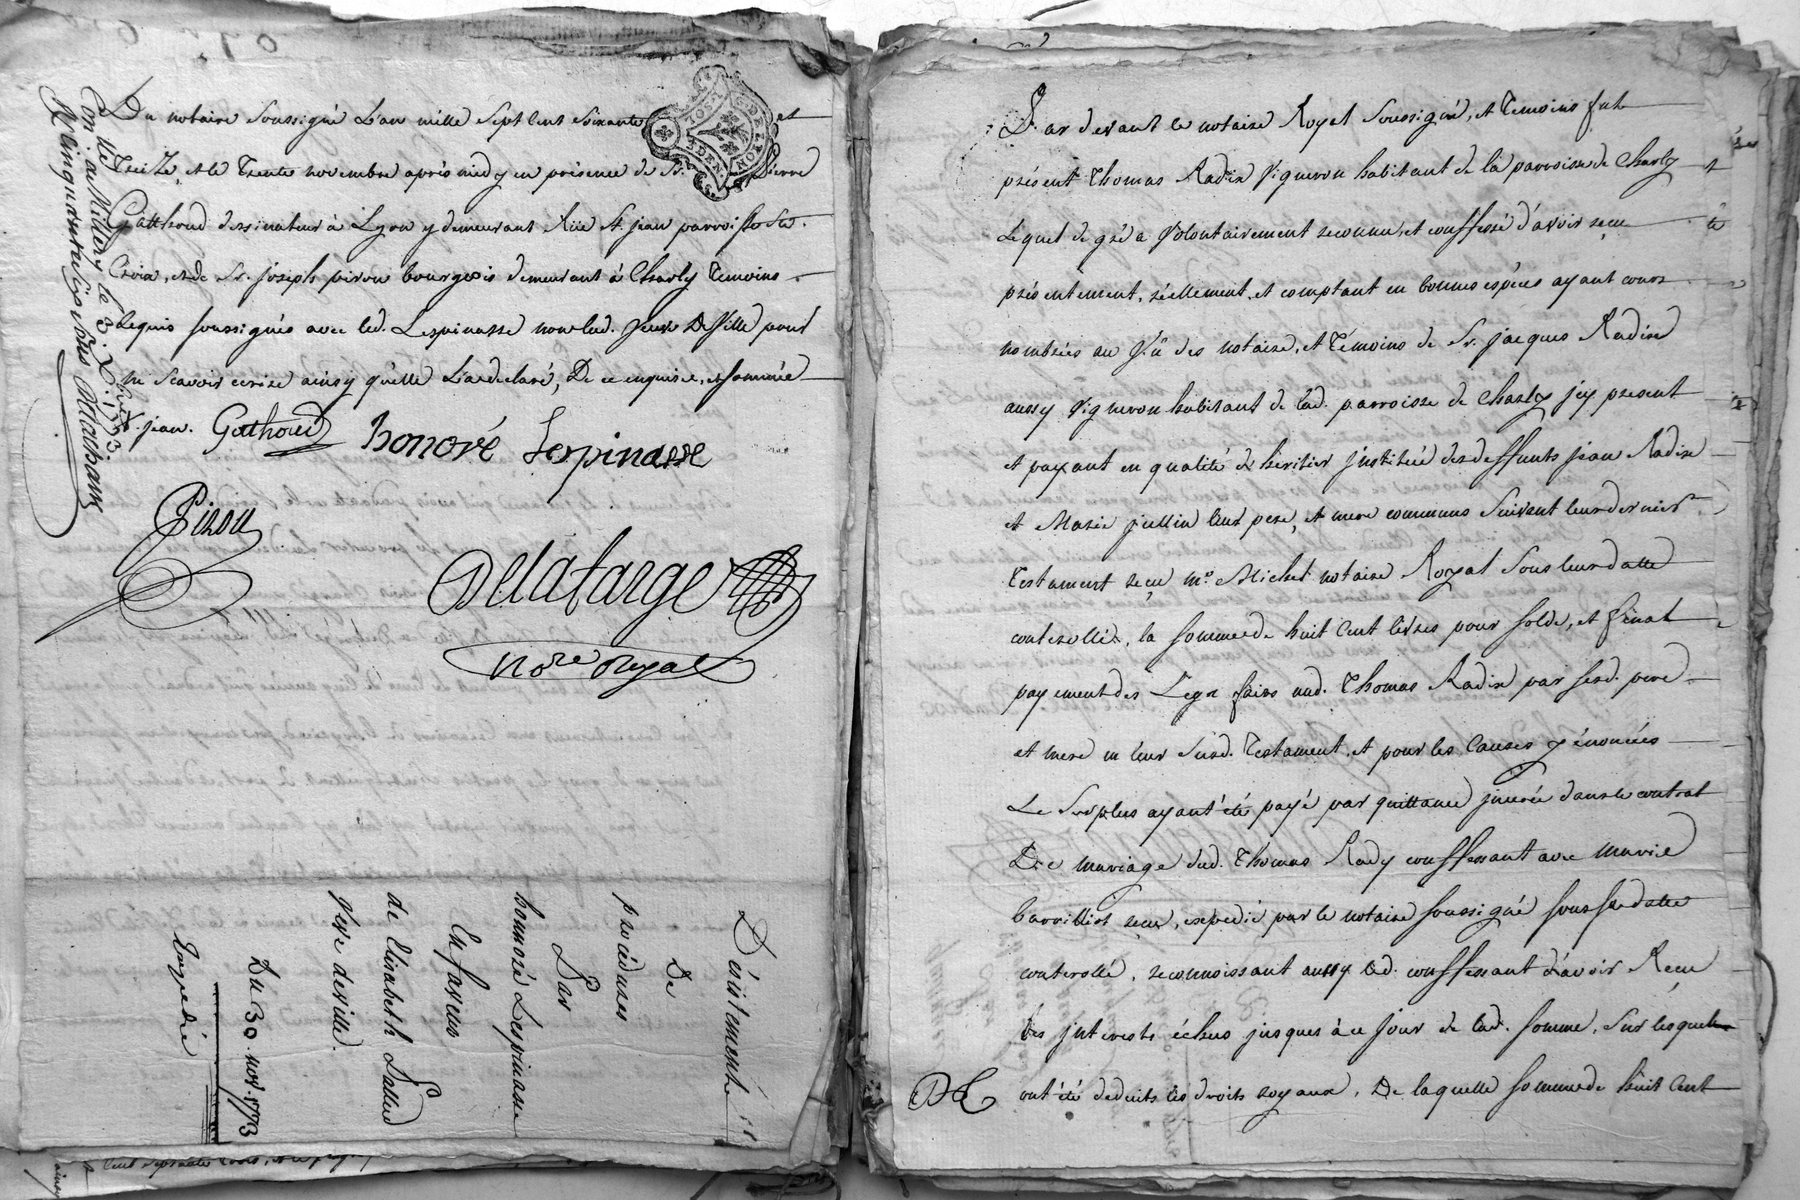 Du notaire soussigné L'an mille sept Cent soixante et
treize, et le trente novembre après midy en présence de Sr. Pierre
Gathoud dessinateur à Lyon y demeurant Rüe St. jean parroisse Ste.
Croix, et de Sr. joseph piron bourgeois demeurant à Charly temoins
Requis soussignés avec led. Lespinasse non lad. veuve Deville pour
ne Scavoir ecrire ainsy qu'elle L'a declaré, De ce enquise, et sommée
jean. Gathoud honoré Lespinasse
Piron
Delafarge
nore royal
Con. à Millery le 3. Xbre 1773
Desistement
De
procédures
Par
honnoré Lespinasse
En faveur
de Elisabeth
veve deville.
Du 30. nov. 1773
Expedié
DE LYON
Par devant le notaire Royal soussigné, et temoins fut
présent thomas Radix vigneron habitant de la parroisse de Charly
Lequel de gré a volontairement reconnu, et conffessé d'avoir reçu
présentement, réellement, et comptant en bonnes espéces ayant cours
nombrées au vû des notaire, et témoins de Sr. jacques Radix
aussy vigneron habitant de lad. parroisse de Charly jcy present
et payant en qualité de héritier jnstitué des deffunts jean Radix
et Marie jullin leur pere, et mere communs suivant leur dernier
testament reçu me. Michel notaire Royal sous leur datte
conterollés, la somme de huit Cent livres pour solde, et final
payement des Legs faits aud. thomas Radix par sesd. pere
et mere en leur susd. testament, et pour les causes y énoncées
Le surplus ayant été payé par quittance jnserée dans le contrat
De mariage dud. thomas Rady conffessant avec marie
reçu, expedié par le notaire soussigné sous sa datte
conterollé, reconnoissant aussy led. conffessant d'avoir Recu
Les jnterests échus jusques à ce jour de lad. somme, sur lesquels
ont été deduits les droits royaux, De laquelle somme de huit Cent